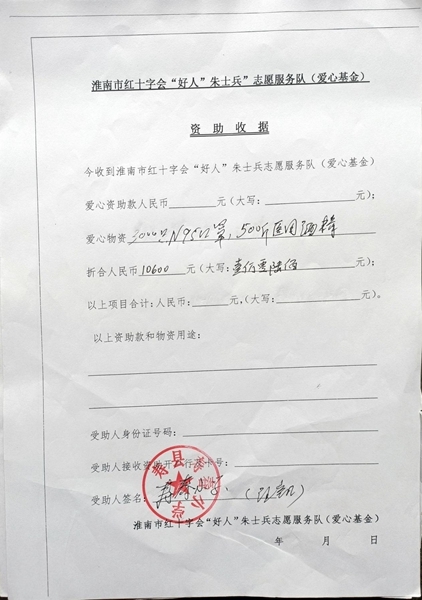 淮南市红十字会“好人”朱士兵”志愿服务队（爱心基金）
资 助 收 据
今收到淮南市红十字会“好人”朱士兵志愿服务队（爱心基金）
爱心资助款人民币______元（大写：____________元）；
爱心物资 3000只N95口罩，500斤医用酒精
折合人民币 10600 元（大写：壹万零陆佰 元）；
以上项目合计：人民币：______元，（大写：____________元）。
以上资助款和物资用途：
受助人身份证号码：
受助人接收资助开 行 卡号：
受助人签名：
寿县 小学
淮南市红十字会“好人”朱士兵志愿服务队（爱心基金）
年 月 日